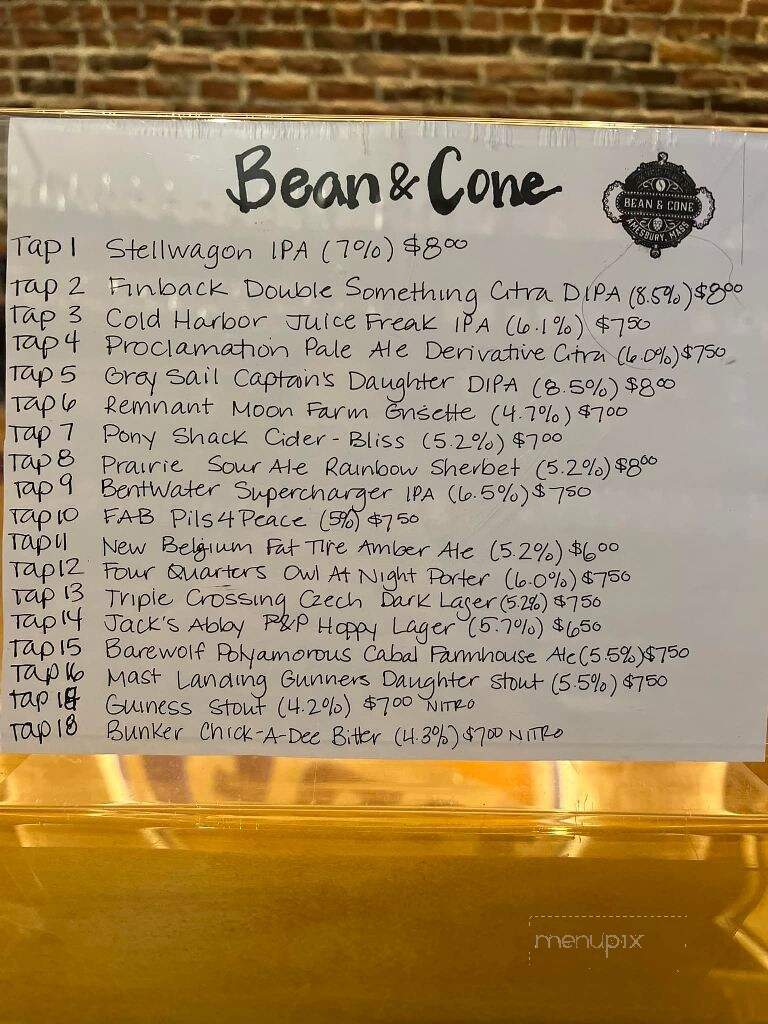 Bean & Cone
BEAN & CONE
AMESBURY, MASS
Tap 1 Stellwagon IPA (7%) $8.00
Tap 2 Finback Double Something Citra DIPA (8.5%) $8.00
Tap 3 Cold Harbor Juice Freak IPA (6.1%) $7.50
Tap 4 Proclamation Pale Ale Derivative Citra (6.0%) $7.50
Tap 5 Grey Sail Captain's Daughter DIPA (8.5%) $8.00
Tap 6 Remnant Moon Farm Grisette (4.7%) $7.00
Tap 7 Pony Shack Cider - Bliss (5.2%) $7.00
Tap 8 Prairie Sour Ale Rainbow Sherbet (5.2%) $8.00
Tap 9 Bentwater Supercharger IPA (6.5%) $7.50
Tap 10 FAB Pils4Peace (5%) $7.50
Tap 11 New Belgium Fat Tire Amber Ale (5.2%) $6.00
Tap 12 Four Quarters Owl At Night Porter (6.0%) $7.50
Tap 13 Triple Crossing Czech Dark Lager (5.2%) $7.50
Tap 14 Jack's Abby P&P Hoppy Lager (5.7%) $6.50
Tap 15 Barewolf Polyamorous Cabal Farmhouse Ale (5.5%) $7.50
Tap 16 Mast Landing Gunners Daughter Stout (5.5%) $7.50
Tap 17 Guiness Stout (4.2%) $7.00 NITRO
Tap 18 Bunker Chick-A-Dee Bitter (4.3%) $7.00 NITRO
menupix